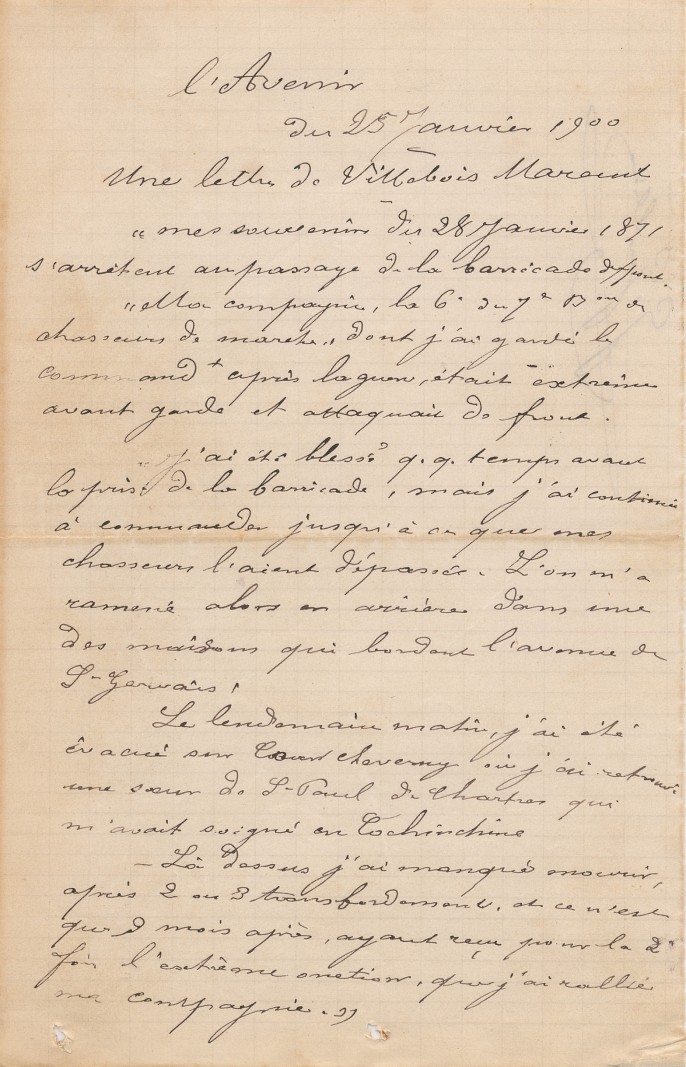 l'Avenir
du 25 Janvier 1900
Une lettre de Villebois Mareuil
"mes souvenirs du 28 Janvier 1871
s'arrêtent au passage de la barricade
"Ma compagnie, la 6e du 7e Bon de
chasseurs de marche, dont j'ai gardé le
commandt après la guerre, était extrême
avant garde et attaquait de front.
"J'ai été blessé q.q. temps avant
la prise de la barricade, mais j'ai continué
à commander jusqu'à ce que mes
chasseurs l'aient dépassée. L'on m'a
ramené alors en arrière dans une
des maisons qui bordent l'avenue de
St Gervais!
Le lendemain matin, j'ai été
évacué sur Cour Cheverny où j'ai retrouvé
une sœur de St Paul de Chartres qui
m'avait soigné en Cochinchine
- Là dessus j'ai manqué mourir,
après 2 ou 3 transbordement, et ce n'est
que mois après, ayant reçu pour la 2e
fois l'extrême onction, que j'ai rallié
ma compagnie."